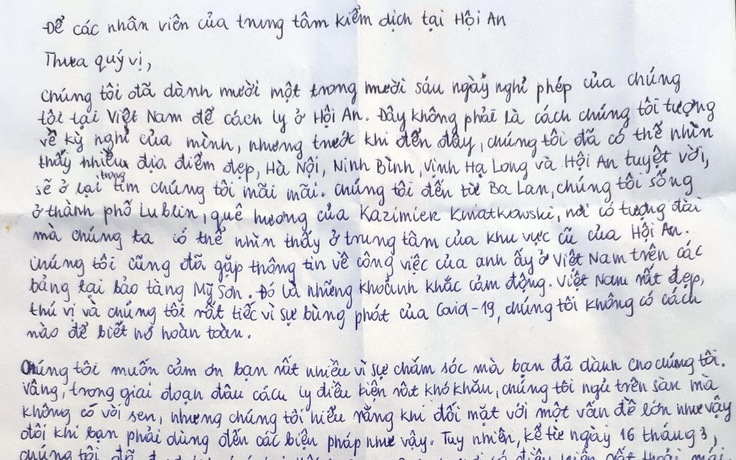 Để các nhân viên của trung tâm kiểm dịch tại Hội An
Thưa quý vị,
Chúng tôi đã dành mười một trong mười sáu ngày nghỉ phép của chúng
tôi tại Việt Nam để cách ly ở Hội An. Đây không phải là cách chúng tôi tượng
về kỳ nghỉ của mình, nhưng trước khi đến đây, chúng tôi đã có thể nhìn
thấy nhiều địa điểm đẹp, Hà Nội, Ninh Bình, Vịnh Hạ Long và Hội An tuyệt vời,
sẽ ở lại trong tim chúng tôi mãi mãi. Chúng tôi đến từ Ba Lan, chúng tôi sống
ở thành phố Lublin, quê hương của Kazimier Kwiatkowski, nơi có tượng đài
mà chúng ta có thể nhìn thấy ở trung tâm của khu vực cũ của Hội An.
Chúng tôi cũng đã gặp thông tin về công việc của anh ấy ở Việt Nam trên các
bảng tại bảo tàng Mỹ Sơn. Đó là những khoảnh khắc cảm động. Việt Nam rất đẹp,
thú vị và chúng tôi rất tiếc vì sự bùng phát của Covid-19, chúng tôi không có cách
nào để biết nó hoàn toàn.
Chúng tôi muốn cảm ơn bạn rất nhiều vì sự chăm sóc mà bạn đã dành cho chúng tôi.
Vâng, trong giai đoạn đầu cách ly điều kiện rất khó khăn, chúng tôi ngủ trên sàn mà
không có vòi sen, nhưng chúng tôi hiểu rằng khi đối mặt với một vấn đề lớn như vậy
đôi khi bạn phải dùng đến các biện pháp như vậy. Tuy nhiên, kể từ ngày 16 tháng 3,
chúng tôi đã điều kiện rất thoải mái.